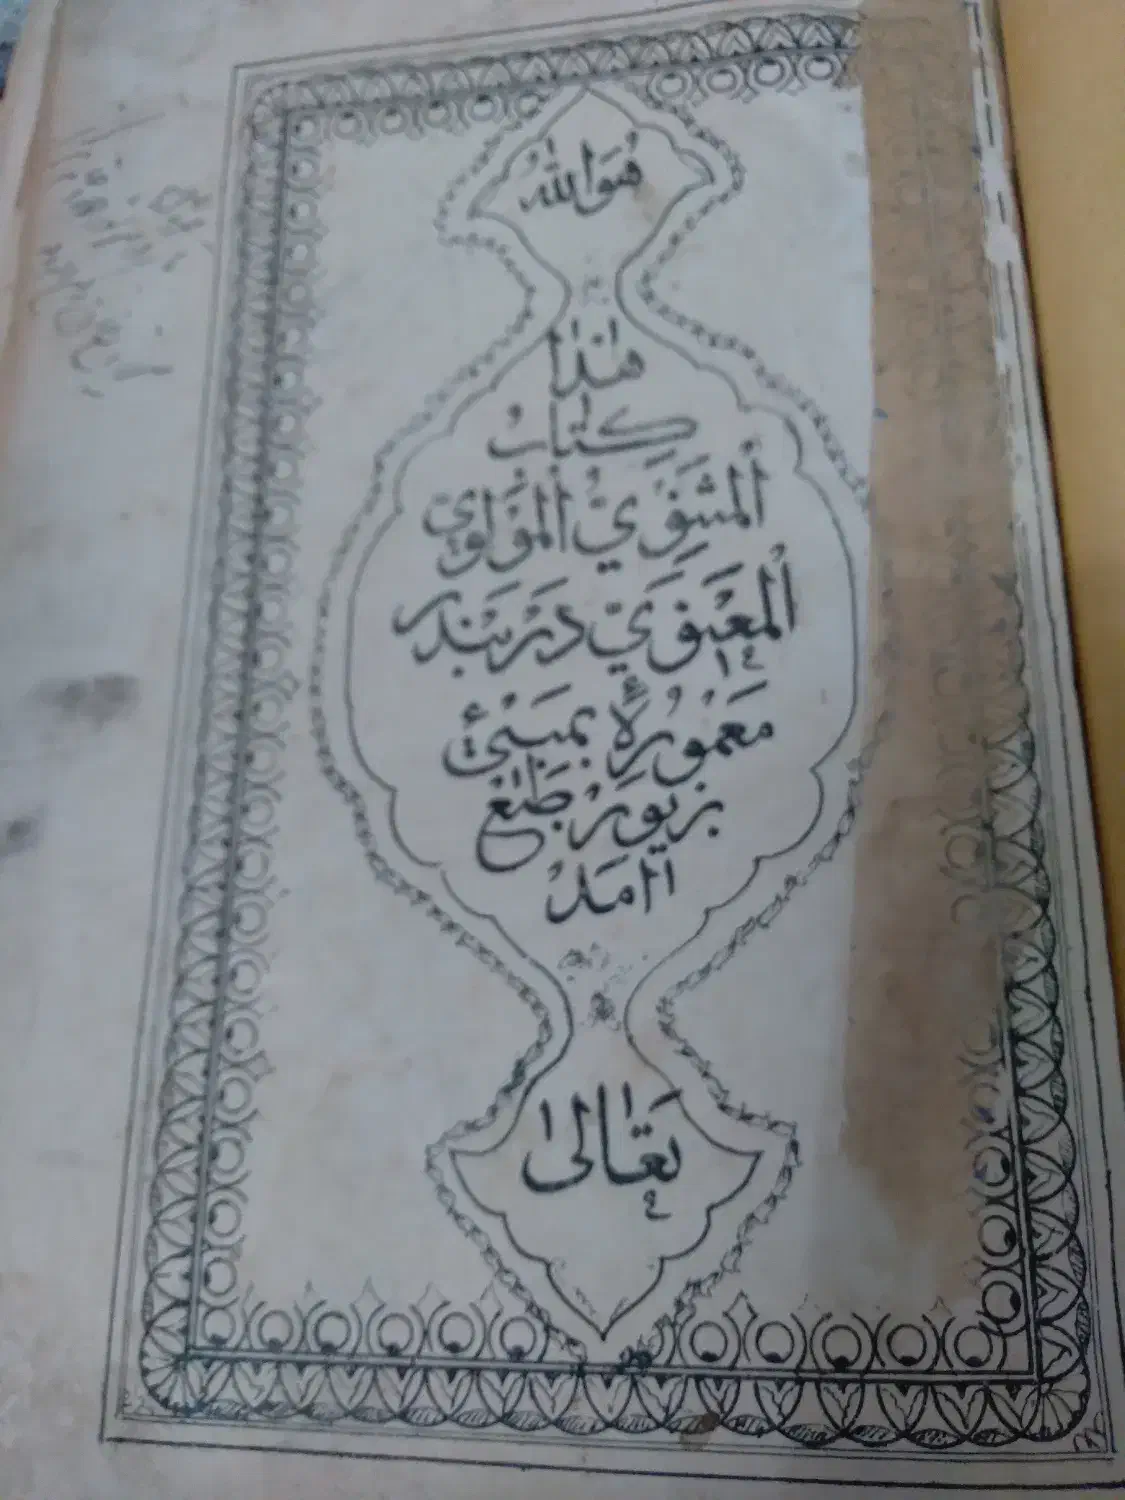 هُوَ اللهُ
هٰذا
کِتٰابُ
اَلْمَثْنَوِيِّ الْمَوْلَوِيِّ
اَلْمَعْنَوِيِّ دَرْ بَنْدَرِ
مَعْمُورِهٔ بَمْبَئِی
بزیورِ طَبْع
اٰمَدْ
تَعٰالیٰ